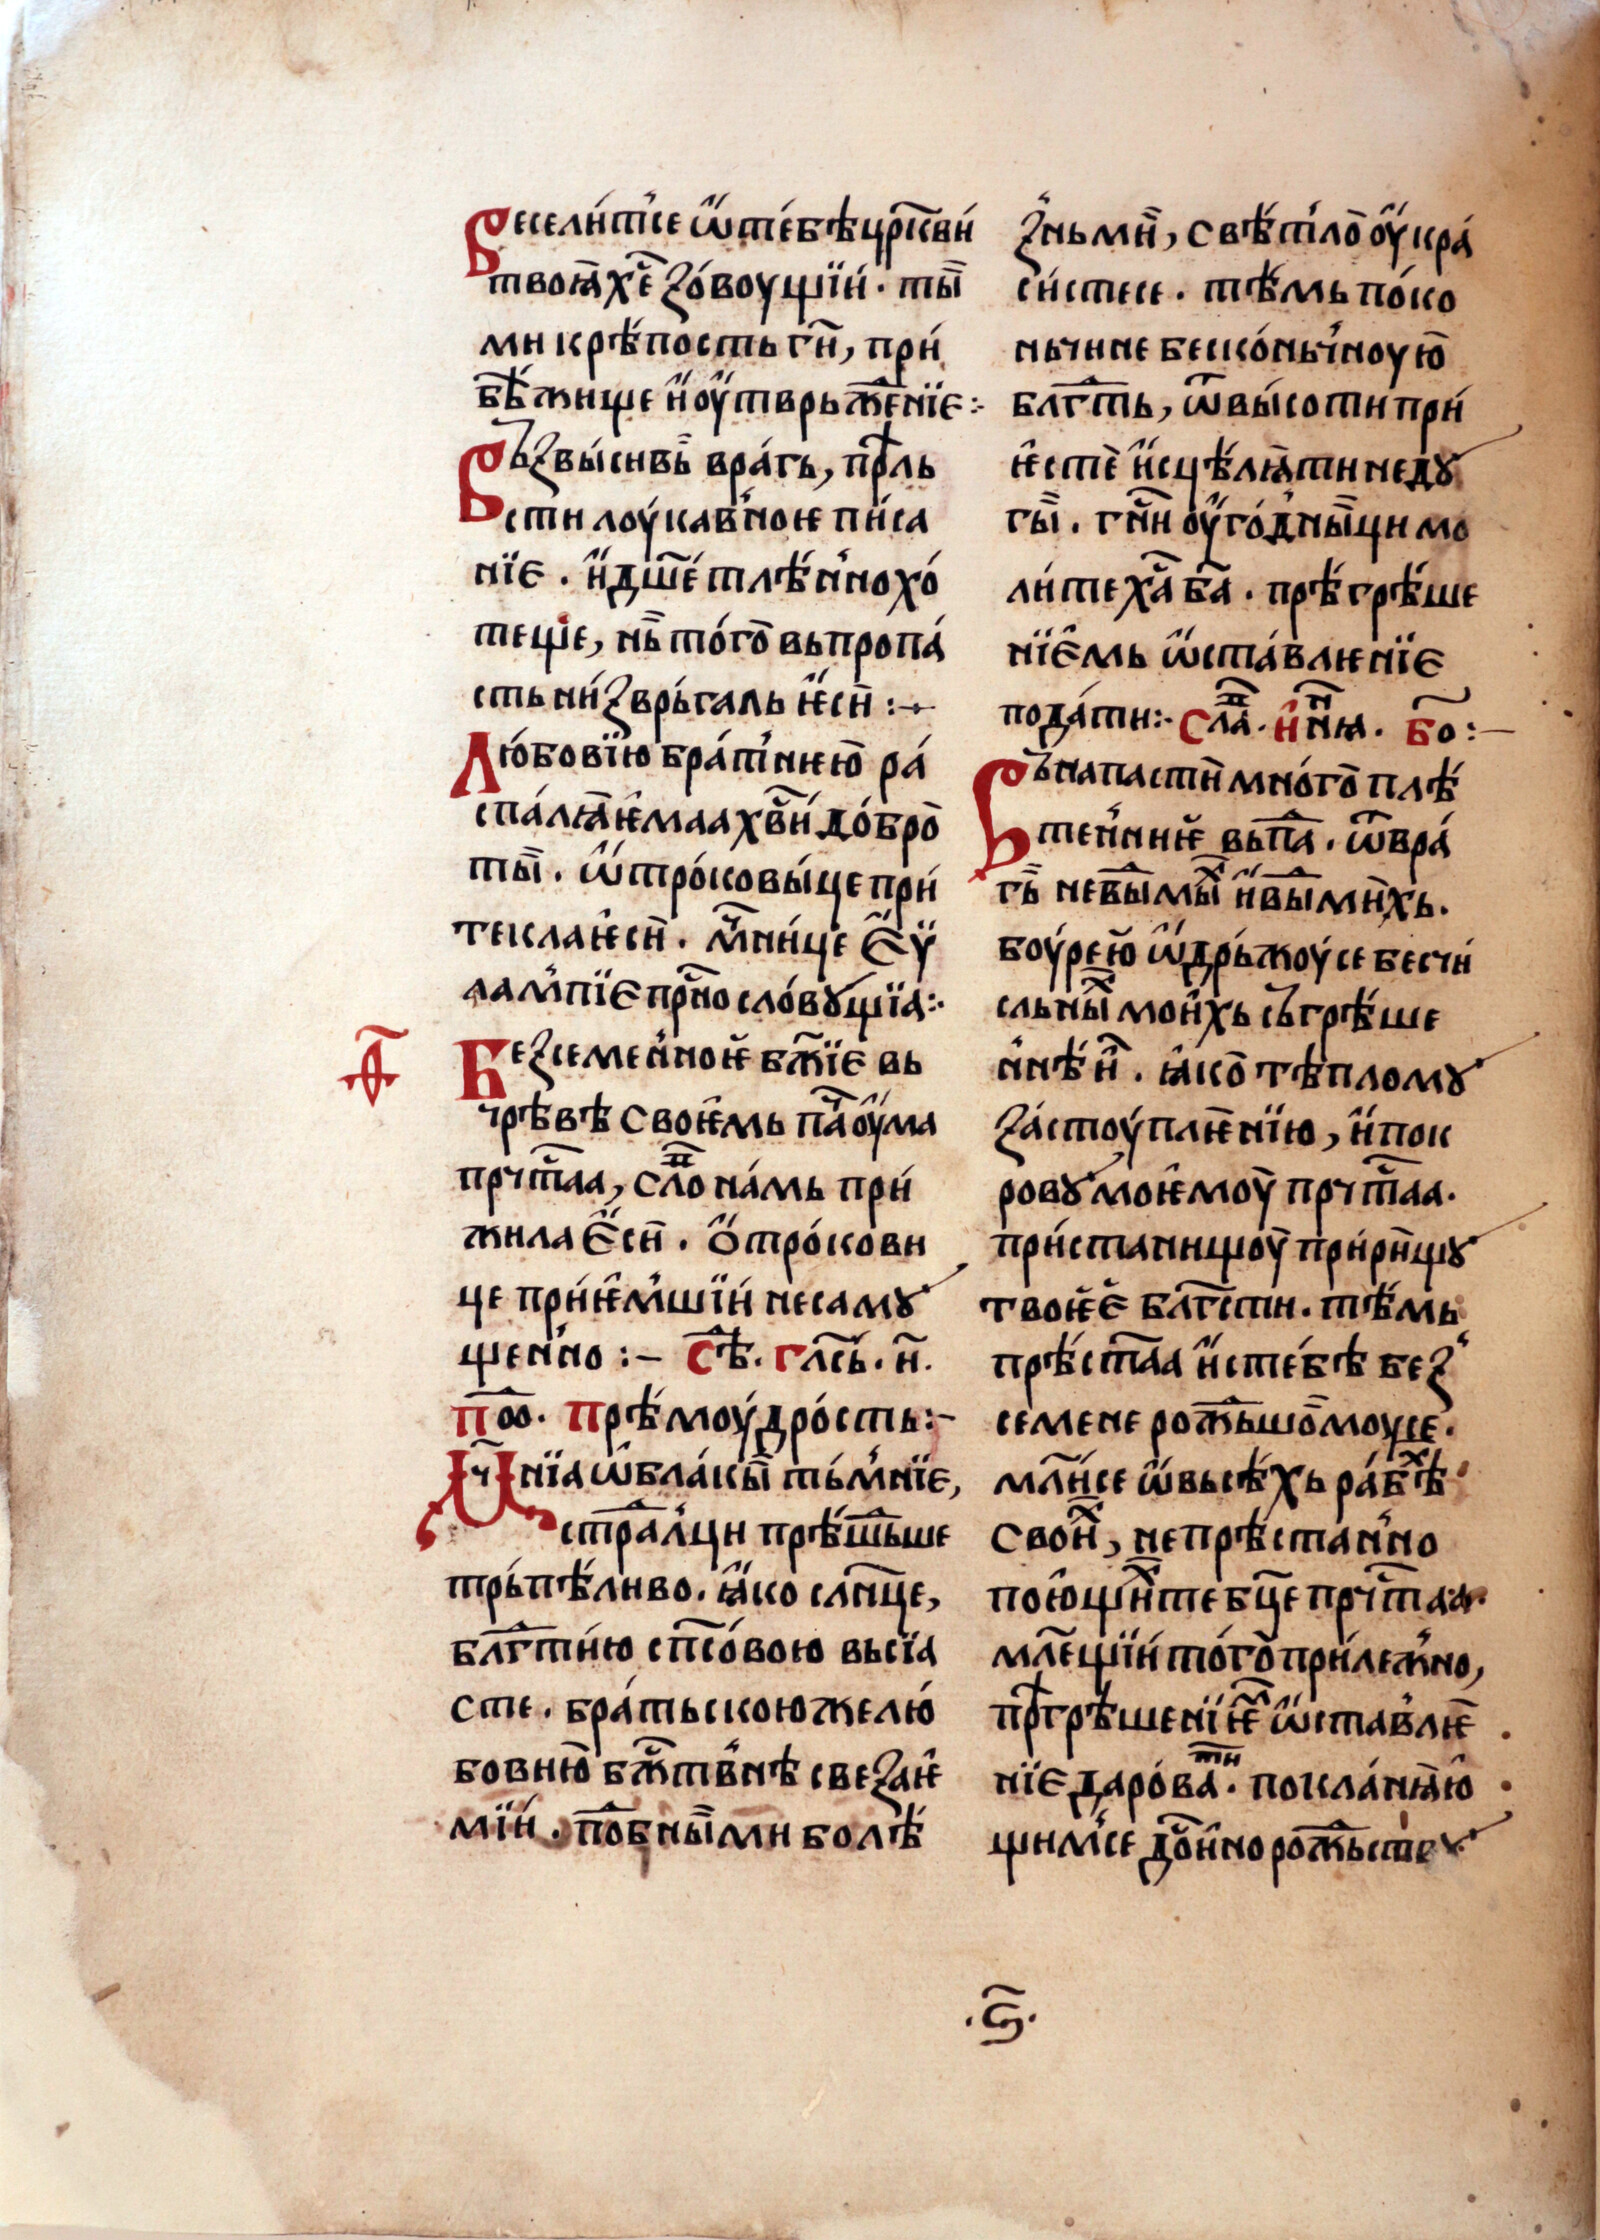 Веселит́се ѿ тебѣ цр҃кви
твоꙗ х҃е зовоущїи · ты
ми крѣпость ги҃, при
бѣжище и оутврьж҃енїе :·
Въꙁвысивь врагь, прⷣль
сти лоукав'ное писа
нїе · и дш҃е тлѣн'но хо
теще, нь того вь пропа
сть ниꙁврьгаль ѥси :·
Любовїю брат'нѥю ра
спалꙗѥмаа х҃вїи добро
ты · ѡтроковыце при
текла ѥси · мч҃нице Єѵ
лампїе прⷭ҇нословꙋщїа :·
Беꙁсемен'ноѥ бж҃їе вь
чрѣвѣ своѥмь па҃че оума
прчⷭ҇таа, слⷪ҇во намь при
жила Єси · Отрокови
це приѥм'шїи несамꙋ
щен'но :– Сⷣѣ · гла҃сь · и҃ ·
поⷣ · Прѣмоудрость :–
Мч҃нїа ѡблакы тьм'нїе,
страⷣал'ци прѣшⷣьше
трьпѣливо · ꙗко слн҃це,
блгⷣтїю спс҃овою вьсїа
сте · братьскоюже лю
бовию бжⷭ҇тв'нѣ свеꙁаѥ
мїи · поⷣбными болѣ
ꙁньми, свѣт'ло оукра
систесе · тѣмь поко
ньчине бесконьч'ноую
блгⷣть, ѿ высоти при
ѥсте исцѣлꙗти недꙋ
гы · гн҃и оугод'ныци мо
лите х҃а б҃а · прѣгрѣше
нїемь ѡставлѥнїе
подати :· Слаⷡ · и нн҃ꙗ · Б҃о :–
Въ напасти много плѣ
тен'ниѥ вьпаⷣ · ѿ вра
гь невыⷣмыⷯ и выⷣмихь ·
боурею ѡдрьжоусе бесчи
сльныⷯ моихь сьгрѣше
н'нѣи · ꙗко тѣпломꙋ
ꙁастоуплѥнїю, и пок
ровꙋ моѥмоу прчⷭ҇таа ·
пристанищоу пририщꙋ
твоѥе блгⷭ҇ти · тѣмь
прѣстⷭ҇аа ис тебѣ беꙁ'
семене рожⷣьшомоусе ·
мл҃исе ѡ вьсѣхь рабⷯѣ
своиⷯ, непрѣстан'но
поющиⷯ те бц҃е прчⷭ҇таа ·
мл҃ещїи того прилеж'но,
прⷣгрѣшенїѥⷨ ѡставлѥ
нїе дароваⷮⷤи · покланꙗю
щим'се дⷭ҇оино рожⷣьствꙋ ·
· ѕ҃ ·